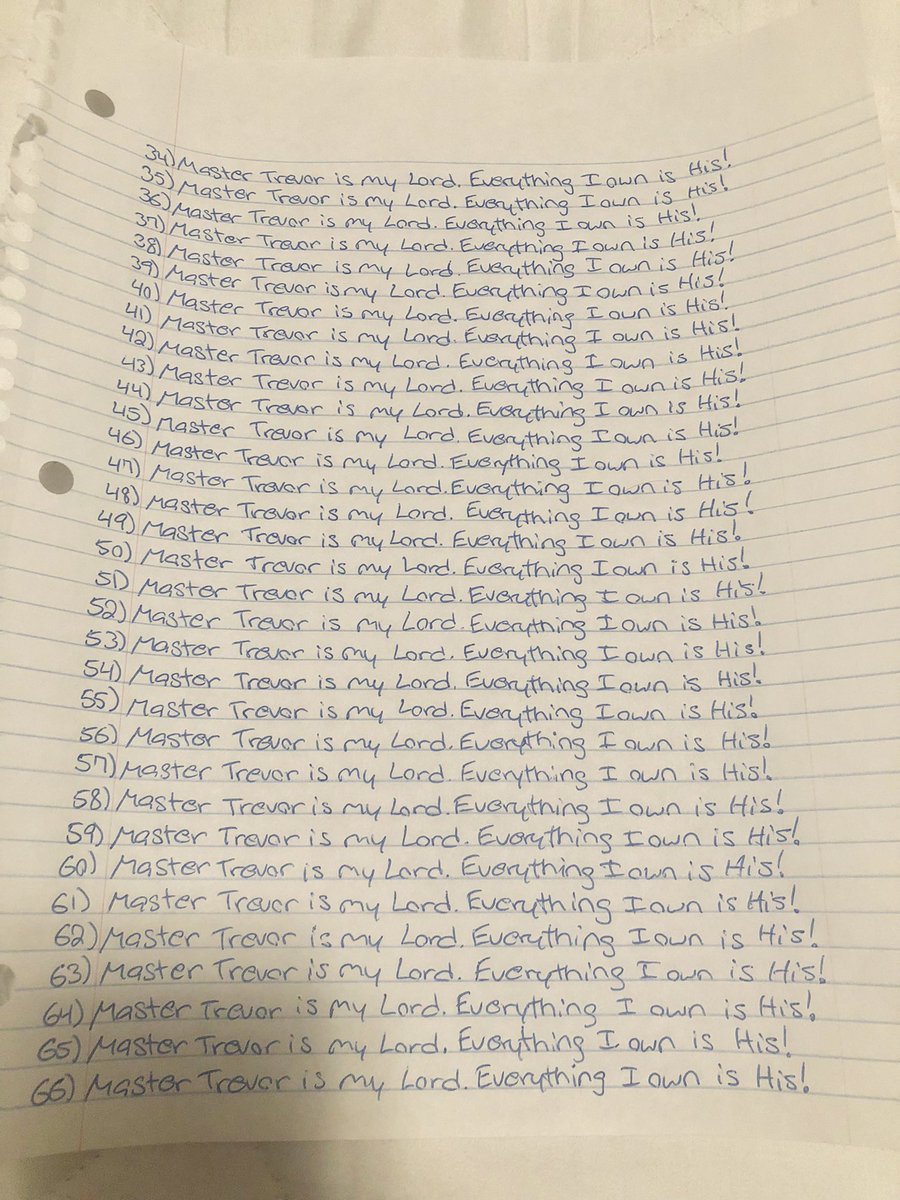 34) Master Trevor is my Lord. Everything I own is His!
35) Master Trevor is my Lord. Everything I own is His!
36) Master Trevor is my Lord. Everything I own is His!
37) Master Trevor is my Lord. Everything I own is His!
38) Master Trevor is my Lord. Everything I own is His!
39) Master Trevor is my Lord. Everything I own is His!
40) Master Trevor is my Lord. Everything I own is His!
41) Master Trevor is my Lord. Everything I own is His!
42) Master Trevor is my Lord. Everything I own is His!
43) Master Trevor is my Lord. Everything I own is His!
44) Master Trevor is my Lord. Everything I own is His!
45) Master Trevor is my Lord. Everything I own is His!
46) Master Trevor is my Lord. Everything I own is His!
47) Master Trevor is my Lord. Everything I own is His!
48) Master Trevor is my Lord. Everything I own is His!
49) Master Trevor is my Lord. Everything I own is His!
50) Master Trevor is my Lord. Everything I own is His!
51) Master Trevor is my Lord. Everything I own is His!
52) Master Trevor is my Lord. Everything I own is His!
53) Master Trevor is my Lord. Everything I own is His!
54) Master Trevor is my Lord. Everything I own is His!
55) Master Trevor is my Lord. Everything I own is His!
56) Master Trevor is my Lord. Everything I own is His!
57) Master Trevor is my Lord. Everything I own is His!
58) Master Trevor is my Lord. Everything I own is His!
59) Master Trevor is my Lord. Everything I own is His!
60) Master Trevor is my Lord. Everything I own is His!
61) Master Trevor is my Lord. Everything I own is His!
62) Master Trevor is my Lord. Everything I own is His!
63) Master Trevor is my Lord. Everything I own is His!
64) Master Trevor is my Lord. Everything I own is His!
65) Master Trevor is my Lord. Everything I own is His!
66) Master Trevor is my Lord. Everything I own is His!